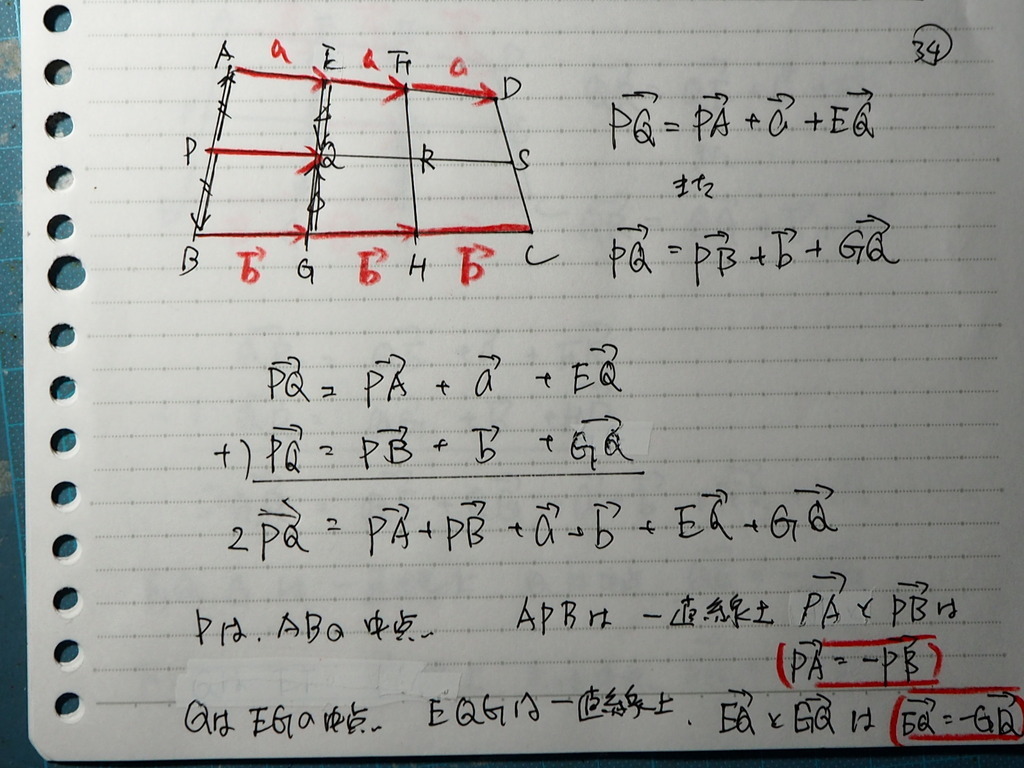 34
A a E a F a D
P Q R S
B b⃗ G b⃗ H b⃗ C
PQ⃗ = PA⃗ + a⃗ + EQ⃗
また
PQ⃗ = PB⃗ + b⃗ + GQ⃗
PQ⃗ = PA⃗ + a⃗ + EQ⃗
+) PQ⃗ = PB⃗ + b⃗ + GQ⃗
2PQ⃗ = PA⃗ + PB⃗ + a⃗ + b⃗ + EQ⃗ + GQ⃗
Pは、ABの中点、 APBは 一直線上 PA⃗ と PB⃗ は
(PA⃗ = -PB⃗)
Qは EGの中点、 EQGは一直線上、 EQ⃗ と GQ⃗ は (EQ⃗ = -GQ⃗)